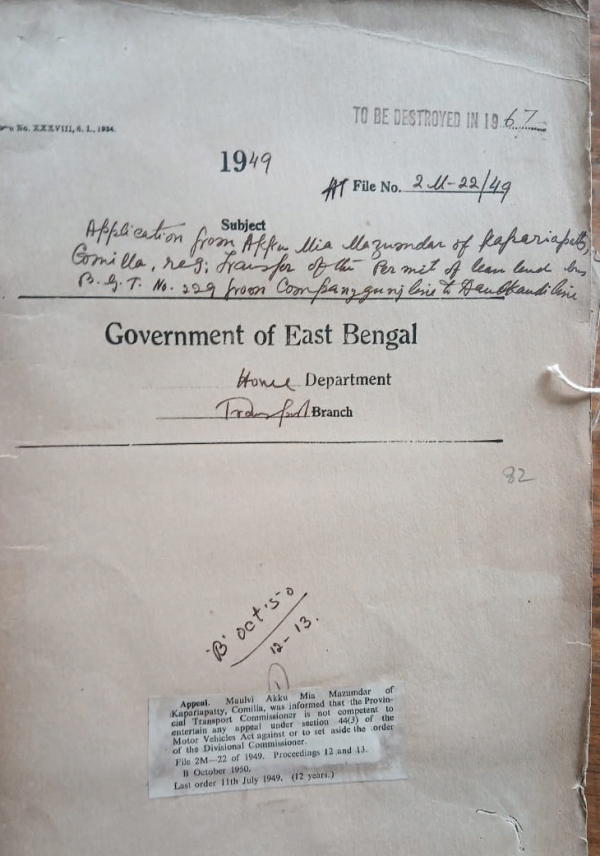 TO BE DESTROYED IN 1967
No. XXXVIII, S. L., 1934.
1949
File No. 2M-22/49
Subject
Application from Akku Mia Mazumdar of Kapariapatty,
Comilla, reg: transfer of the Permit of lean lend bus
B.G.T. No. 229 from Companygunj line to Daudkandi line
Government of East Bengal
Home Department
Transport Branch
82
'B' Oct. 50
12-13.
1
Appeal. Maulvi Akku Mia Mazumdar of
Kapariapatty, Comilla, was informed that the Provin-
cial Transport Commissioner is not competent to
entertain any appeal under section 44(3) of the
Motor Vehicles Act against or to set aside the order
of the Divisional Commissioner.
File 2M—22 of 1949. Proceedings 12 and 13.
B October 1950.
Last order 11th July 1949. (12 years.)